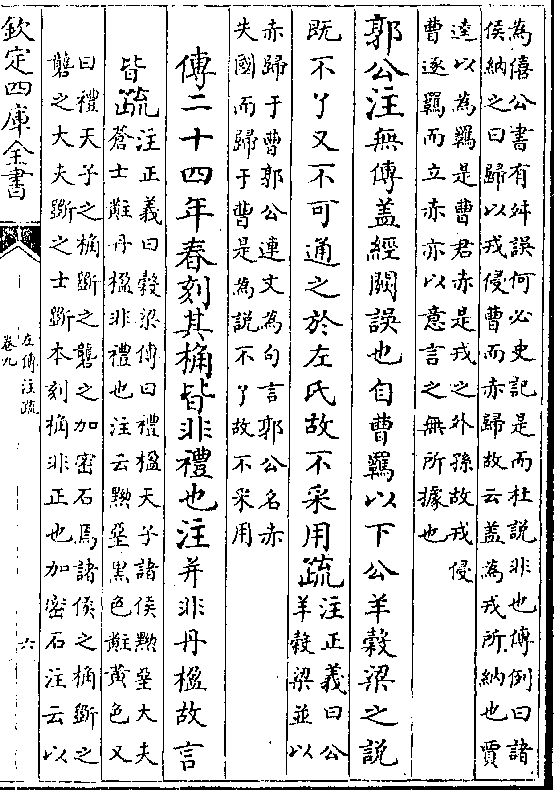 為僖公書有舛誤何必史記是而杜説非也傳例曰諸
侯納之曰歸以戎侵曹而赤歸故云盖為戎所納也賈
逵以為羈是曹君赤是戎之外孫故戎侵
曹逐羈而立赤亦以意言之無所據也
郭公注無傳盖經闕誤也自曹羈以下公羊榖梁之説
既不了又不可通之於左氏故不采用疏注正義曰公
羊榖梁並以
赤歸于曹郭公連文為句言郭公名赤
失國而歸于曹是為説不了故不采用
傳二十四年春刻其桷皆非禮也注并非丹楹故言
皆疏注正義曰榖梁傳曰禮楹天子諸侯黝堊大夫
蒼士黈丹楹非禮也注云黝堊黒色黈黄色又
曰禮天子之桷斲之礱之加密石焉諸侯之桷斲之
礱之大夫斲之士斲本刻桷非正也加密石注云以
欽定四庫全書
左傳注疏
卷九
六